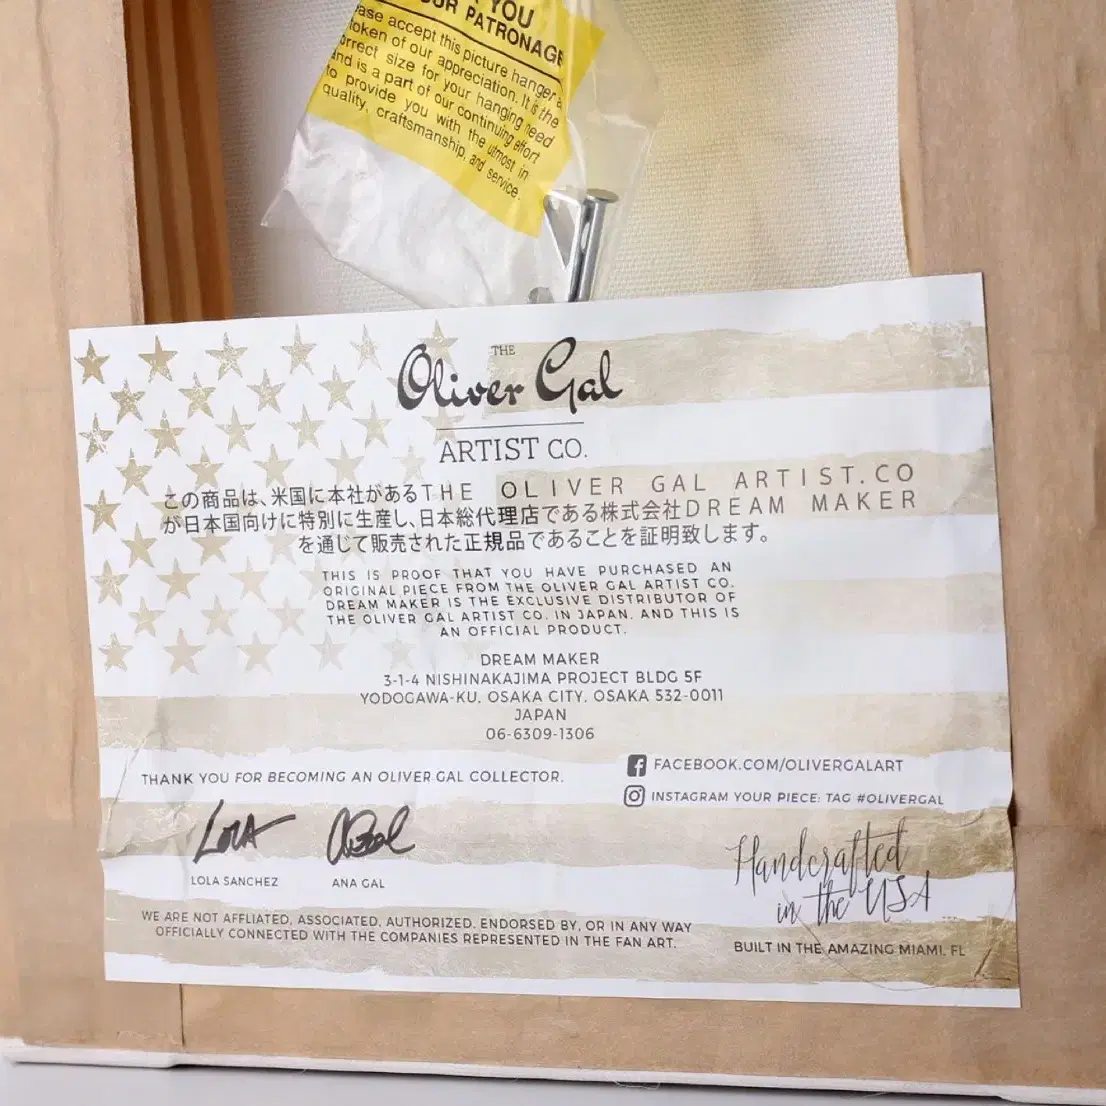 YOU
OUR PATRONAGE
ase accept this picture hanger a
token of our appreciation. It is the
orrect size for your hanging need
and is a part of our continuing effort
to provide you with the utmost in
quality, craftsmanship, and service.
THE
Oliver Gal
ARTIST CO.
この商品は、米国に本社があるTHE OLIVER GAL ARTIST.CO
が日本国向けに特別に生産し、日本総代理店である株式会社DREAM MAKER
を通じて販売された正規品であることを証明致します。
THIS IS PROOF THAT YOU HAVE PURCHASED AN
ORIGINAL PIECE FROM THE OLIVER GAL ARTIST CO.
DREAM MAKER IS THE EXCLUSIVE DISTRIBUTOR OF
THE OLIVER GAL ARTIST CO. IN JAPAN. AND THIS IS
AN OFFICIAL PRODUCT.
DREAM MAKER
3-1-4 NISHINAKAJIMA PROJECT BLDG 5F
YODOGAWA-KU, OSAKA CITY, OSAKA 532-0011
JAPAN
06-6309-1306
THANK YOU FOR BECOMING AN OLIVER GAL COLLECTOR.
FACEBOOK.COM/OLIVERGALART
INSTAGRAM YOUR PIECE: TAG #OLIVERGAL
LOLA
LOLA SANCHEZ
ANA GAL
Handcrafted
in the USA
WE ARE NOT AFFLIATED, ASSOCIATED, AUTHORIZED, ENDORSED BY, OR IN ANY WAY
OFFICIALLY CONNECTED WITH THE COMPANIES REPRESENTED IN THE FAN ART.
BUILT IN THE AMAZING MIAMI, FL